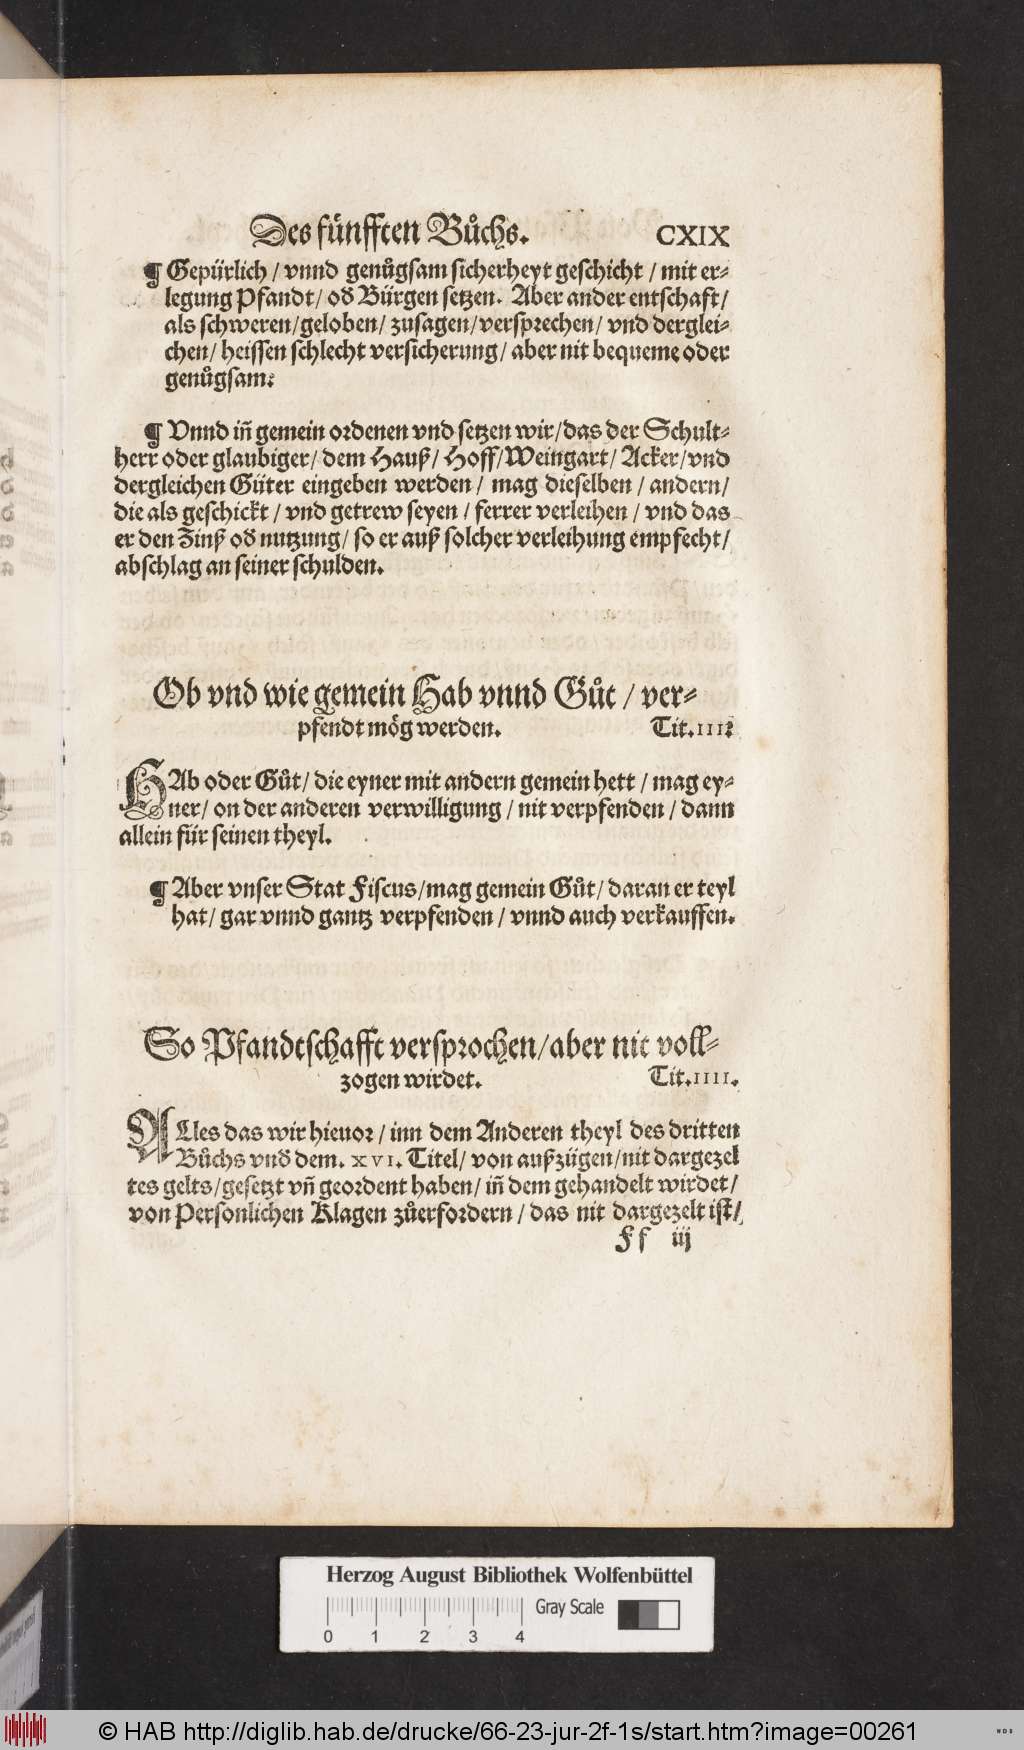 Des fünfften Bůchs. CXIX
¶ Gepürlich / vnnd genůgsam sicherheyt geschicht / mit er⸗
legung Pfandt / oď Bürgen setzen. Aber ander entschaft /
als schweren / geloben / zusagen / versprechen / vnd derglei⸗
chen / heissen schlecht versicherung / aber nit bequeme oder
genůgsam.
¶ Vnnd iñ gemein ordenen vnd setzen wir / das der Schult⸗
herr oder glaubiger / dem Hauß / Hoff / Weingart / Acker / vnd
dergleichen Güter eingeben werden / mag dieselben / andern /
die als geschickt / vnd getrew seyen / ferrer verleihen / vnd das
er den Zinß oď nutzung / so er auß solcher verleihung empfecht /
abschlag an seiner schulden.
Ob vnd wie gemein Hab vnnd Gůt / ver⸗
pfendt mög werden. Tit. IIII.
HAb oder Gůt / die eyner mit andern gemein hett / mag ey⸗
ner / on der anderen verwilligung / nit verpfenden / dann
allein für seinen theyl.
¶ Aber vnser Stat Fiscus / mag gemein Gůt / daran er teyl
hat / gar vnnd gantz verpfenden / vnnd auch verkauffen.
So Pfandtschafft versprochen / aber nit voll⸗
zogen wirdet. Tit. IIII.
ALles das wir hieuor / inn dem Anderen theyl des dritten
Bůchs vnď dem. XVI. Titel / von außzügen / nit dargezel
tes gelts / gesetzt vñ geordent haben / iñ dem gehandelt wirdet /
von Personlichen Klagen zůerfordern / das nit dargezelt ist /
Ff iij
Herzog August Bibliothek Wolfenbüttel
Gray Scale
0 1 2 3 4
© HAB http://diglib.hab.de/drucke/66-23-jur-2f-1s/start.htm?image=00261